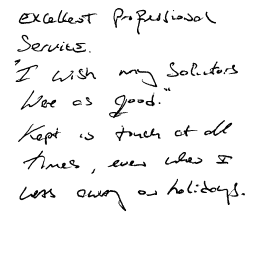 Excellent Professional
Service.
"I wish my Solicitors
were as good."
Kept in touch at all
times, even when I
was away on holidays.